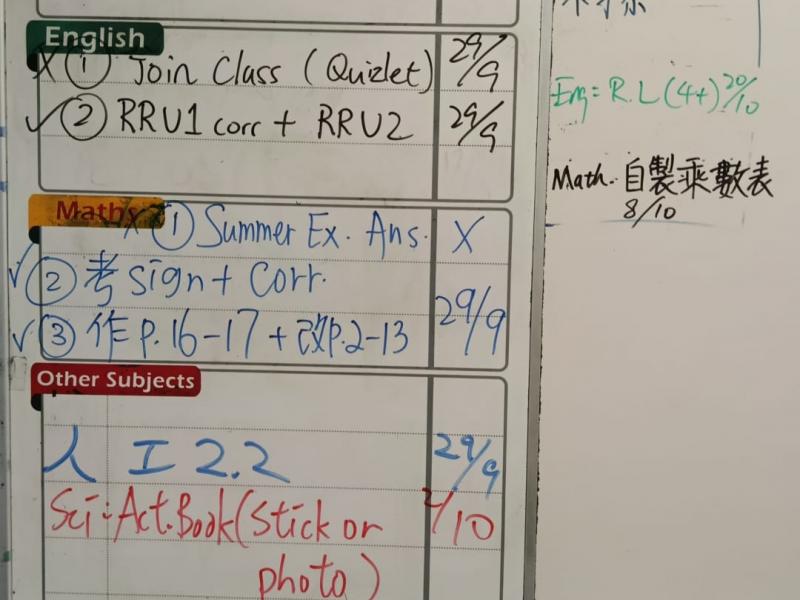 English
X ① Join Class (Quizlet) 29/9
✓ ② RRU1 corr + RRU2 29/9
Maths
X ① Summer Ex. Ans. X
✓ ② 考 sign + Corr.
✓ ③ 作 P.16-17 + 改P.2-13 29/9
Other Subjects
人 工 2.2 29/9
Sci: Act.Book (stick or /10
photo)
Eng: R.L (4+) 20/10
Math. 自製乘數表
8/10